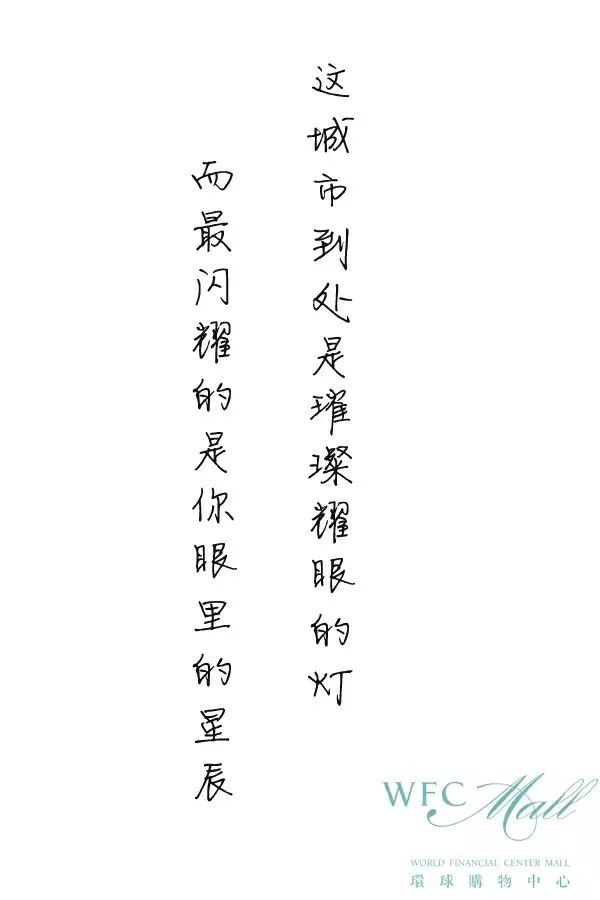 这城市到处是璀璨耀眼的灯
而最闪耀的是你眼里的星辰
WFC Mall
WORLD FINANCIAL CENTER MALL
環球購物中心